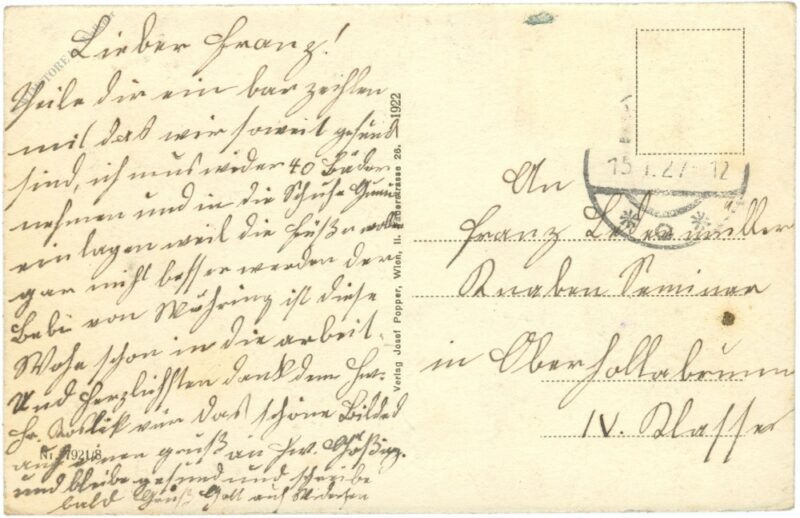 Lieber Franz!
Theile dir ein bar zeihlen
mit daß wir soweit gesund
sind, ich mus wider 40 Bäder
nehmen und in die Schuhe Gumi
einlagen weil die Füße
gar nicht besser werden der
Bebi von Währing ist diese
Wohe schon in die arbeit.
Und herzlichsten dank dem Hw.
Hr. vür das schöne Bilded
auf einen gruß an Hw.
und bleibe gesund und schreibe
bald Grüß Gott auf Widersehen
Nr. 1921/8
Verlag Josef Popper, Wien, II. 26. 1922
15 I. 27 12
An
Franz
Knaben Seminar
in Oberhollabrunn
IV. Klasse